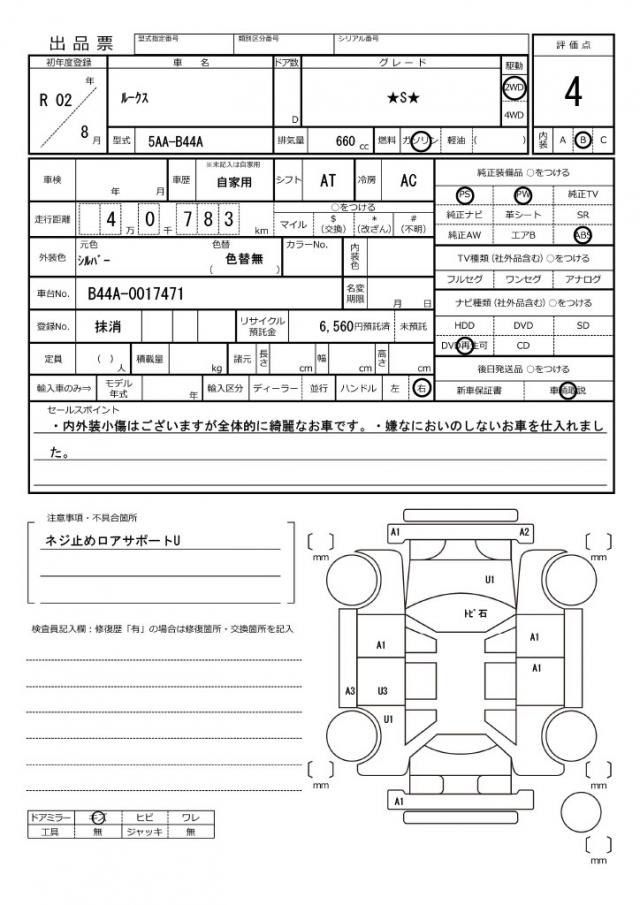 出品票
型式指定番号 類別区分番号 シリアル番号
初年度登録 車名 ドア数 グレード 駆動 評価点
R 02 年 ﾙｰｸｽ D ★S★ 2WD 4
8 月 4WD
型式 5AA-B44A 排気量 660 cc 燃料 ガソリン 軽油 ( ) 内装 A B C
車検 年 月 車歴 ※未記入は自家用 自家用 シフト AT 冷房 AC
走行距離 4 万 0 千 7 8 3 km ○をつける
マイル $(交換) *(改ざん) #(不明)
外装色 元色 ｼﾙﾊﾞｰ 色替 ( 色替無 ) カラーNo. 内装色
車台No. B44A-0017471 名変期限 月 日
登録No. 抹消 リサイクル預託金 6,560円預託済 未預託
定員 ( )人 積載量 kg 諸元 長さ cm 幅 cm 高さ cm
輸入車のみ⇒ モデル年式 年 輸入区分 ディーラー 並行 ハンドル 左 右
純正装備品 ○をつける
PS PW 純正TV
純正ナビ 革シート SR
純正AW エアB ABS
TV種類(社外品含む)○をつける
フルセグ ワンセグ アナログ
ナビ種類(社外品含む)○をつける
HDD DVD SD
DVD再生可 CD
後日発送品 ○をつける
新車保証書 車輌取説
セールスポイント
・内外装小傷はございますが全体的に綺麗なお車です。・嫌なにおいのしないお車を仕入れまし
た。
注意事項・不具合箇所
ネジ止めロアサポートU
検査員記入欄：修復歴「有」の場合は修復箇所・交換箇所を記入
ドアミラー キズ ヒビ ワレ
工具 無 ジャッキ 無
A1 A2
mm mm
U1
ﾄﾋﾞ石
A1 A1
A1
A3 U3
U1
mm mm
A1
mm